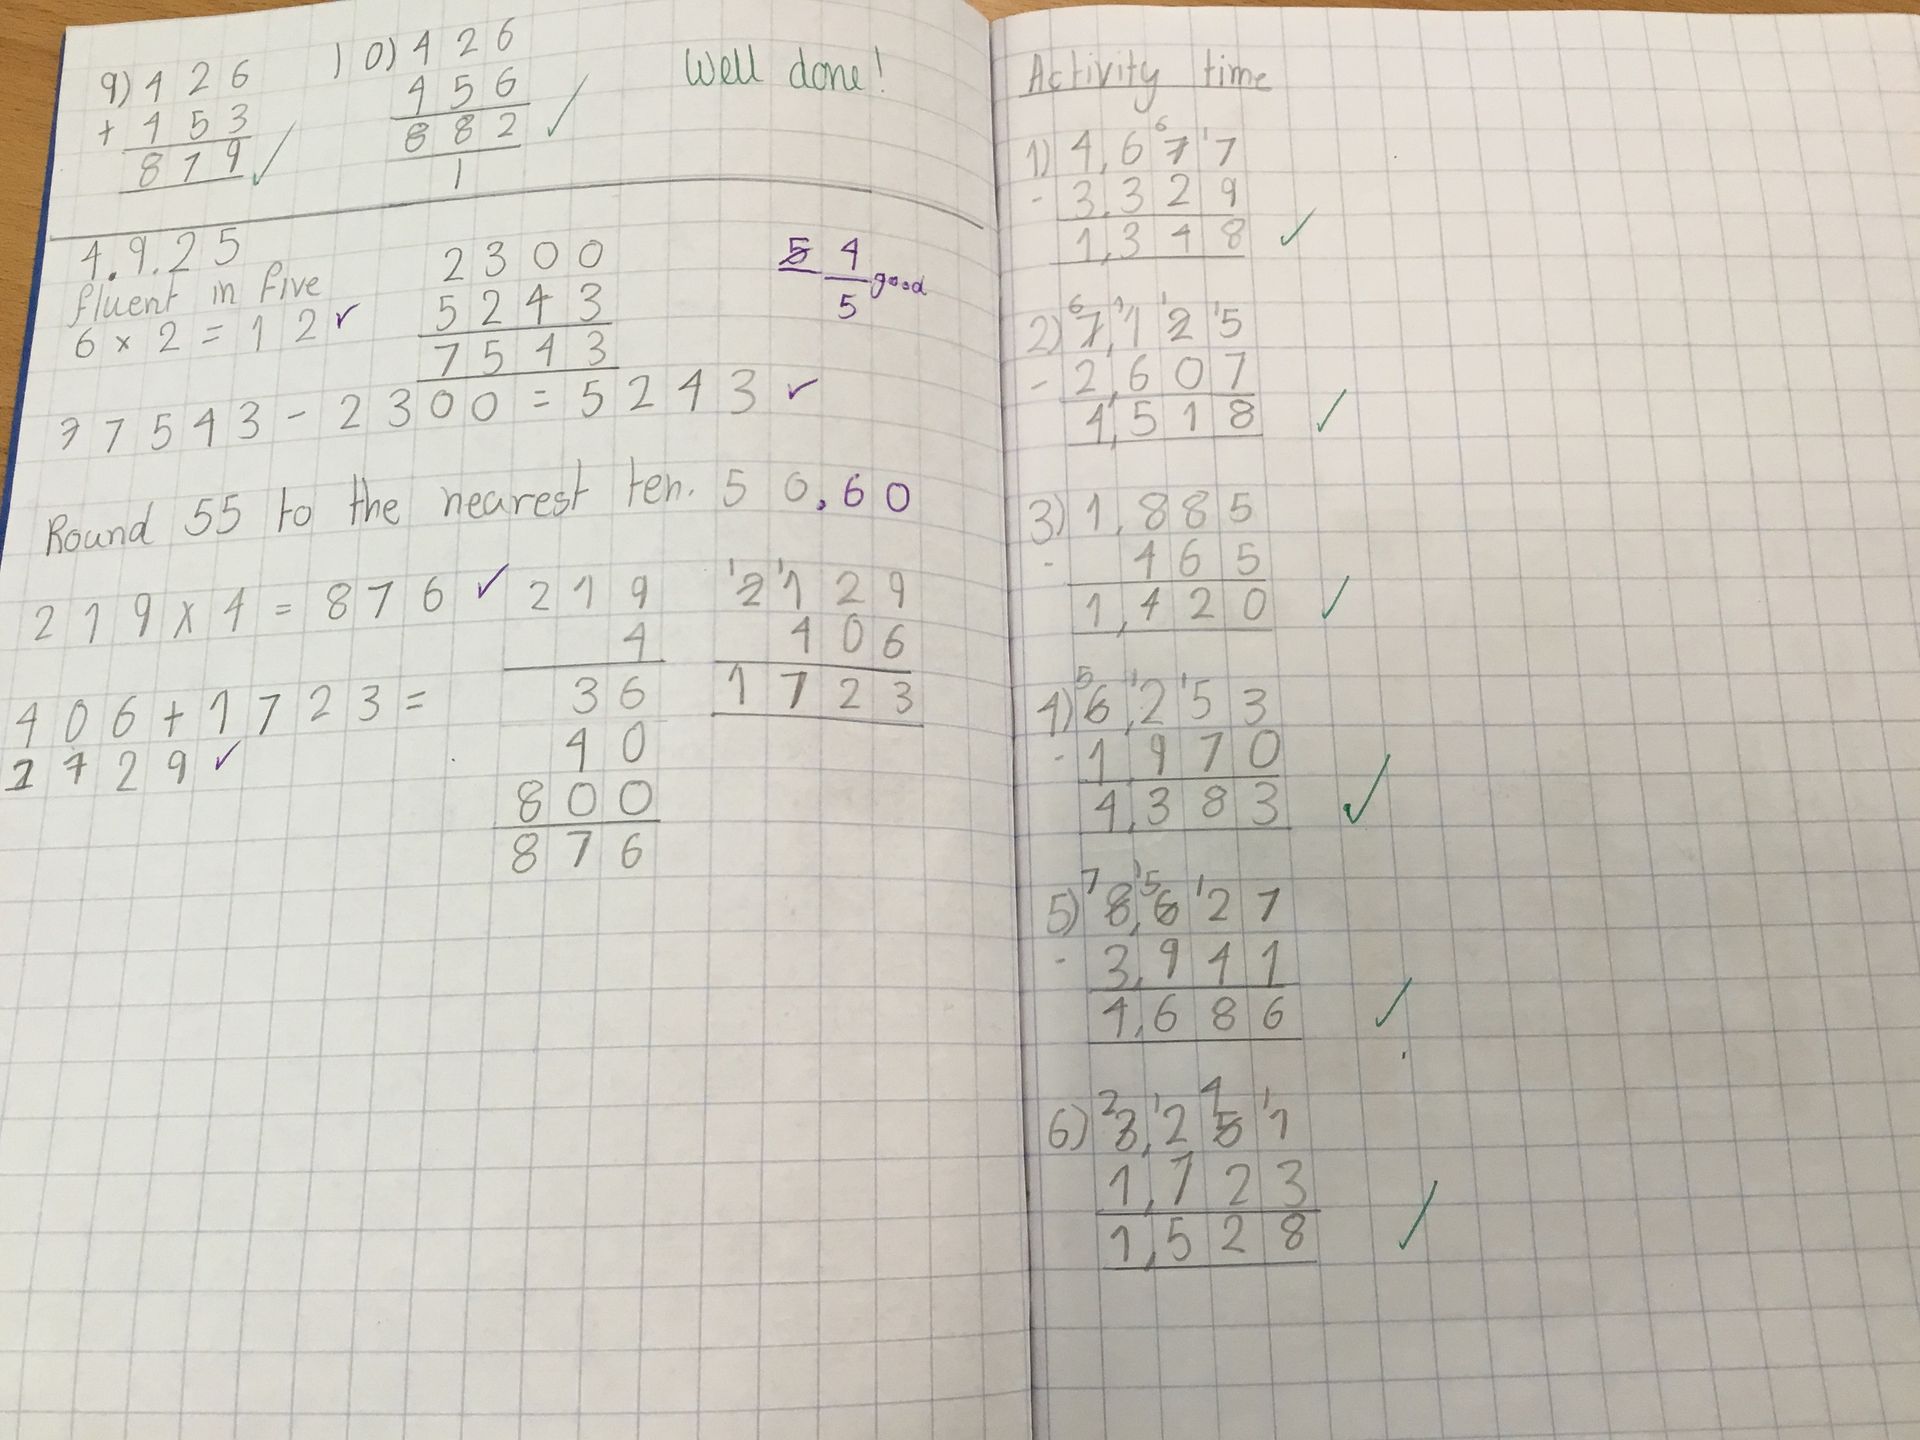 9) 4 2 6
+ 4 5 3
8 7 9
10) 4 2 6
4 5 6
8 8 2
1
Well done!
4.9.25
fluent in five
6 x 2 = 12
2 3 0 0
5 2 4 3
7 5 4 3
5 4
5 good
7 7 5 4 3 - 2 3 0 0 = 5 2 4 3
Round 55 to the nearest ten. 5 0, 6 0
2 1 9 x 4 = 8 7 6
2 1 9
4
3 6
4 0
8 0 0
8 7 6
1 1
2 1 2 9
4 0 6
1 7 2 3
4 0 6 + 1 7 2 3 =
1 7 2 9
Activity time
6 1
1) 4,6 7 7
- 3,3 2 9
1,3 4 8
6 1 1 1
2) 7,1 2 5
- 2,6 0 7
4,5 1 8
3) 1,8 8 5
- 4 6 5
1,4 2 0
5 1 1
4) 6,2 5 3
- 1,9 7 0
4,3 8 3
7 15 1
5) 8,6 2 7
- 3,9 4 1
4,6 8 6
2 1 4 1
6) 3,2 5 1
1,7 2 3
1,5 2 8